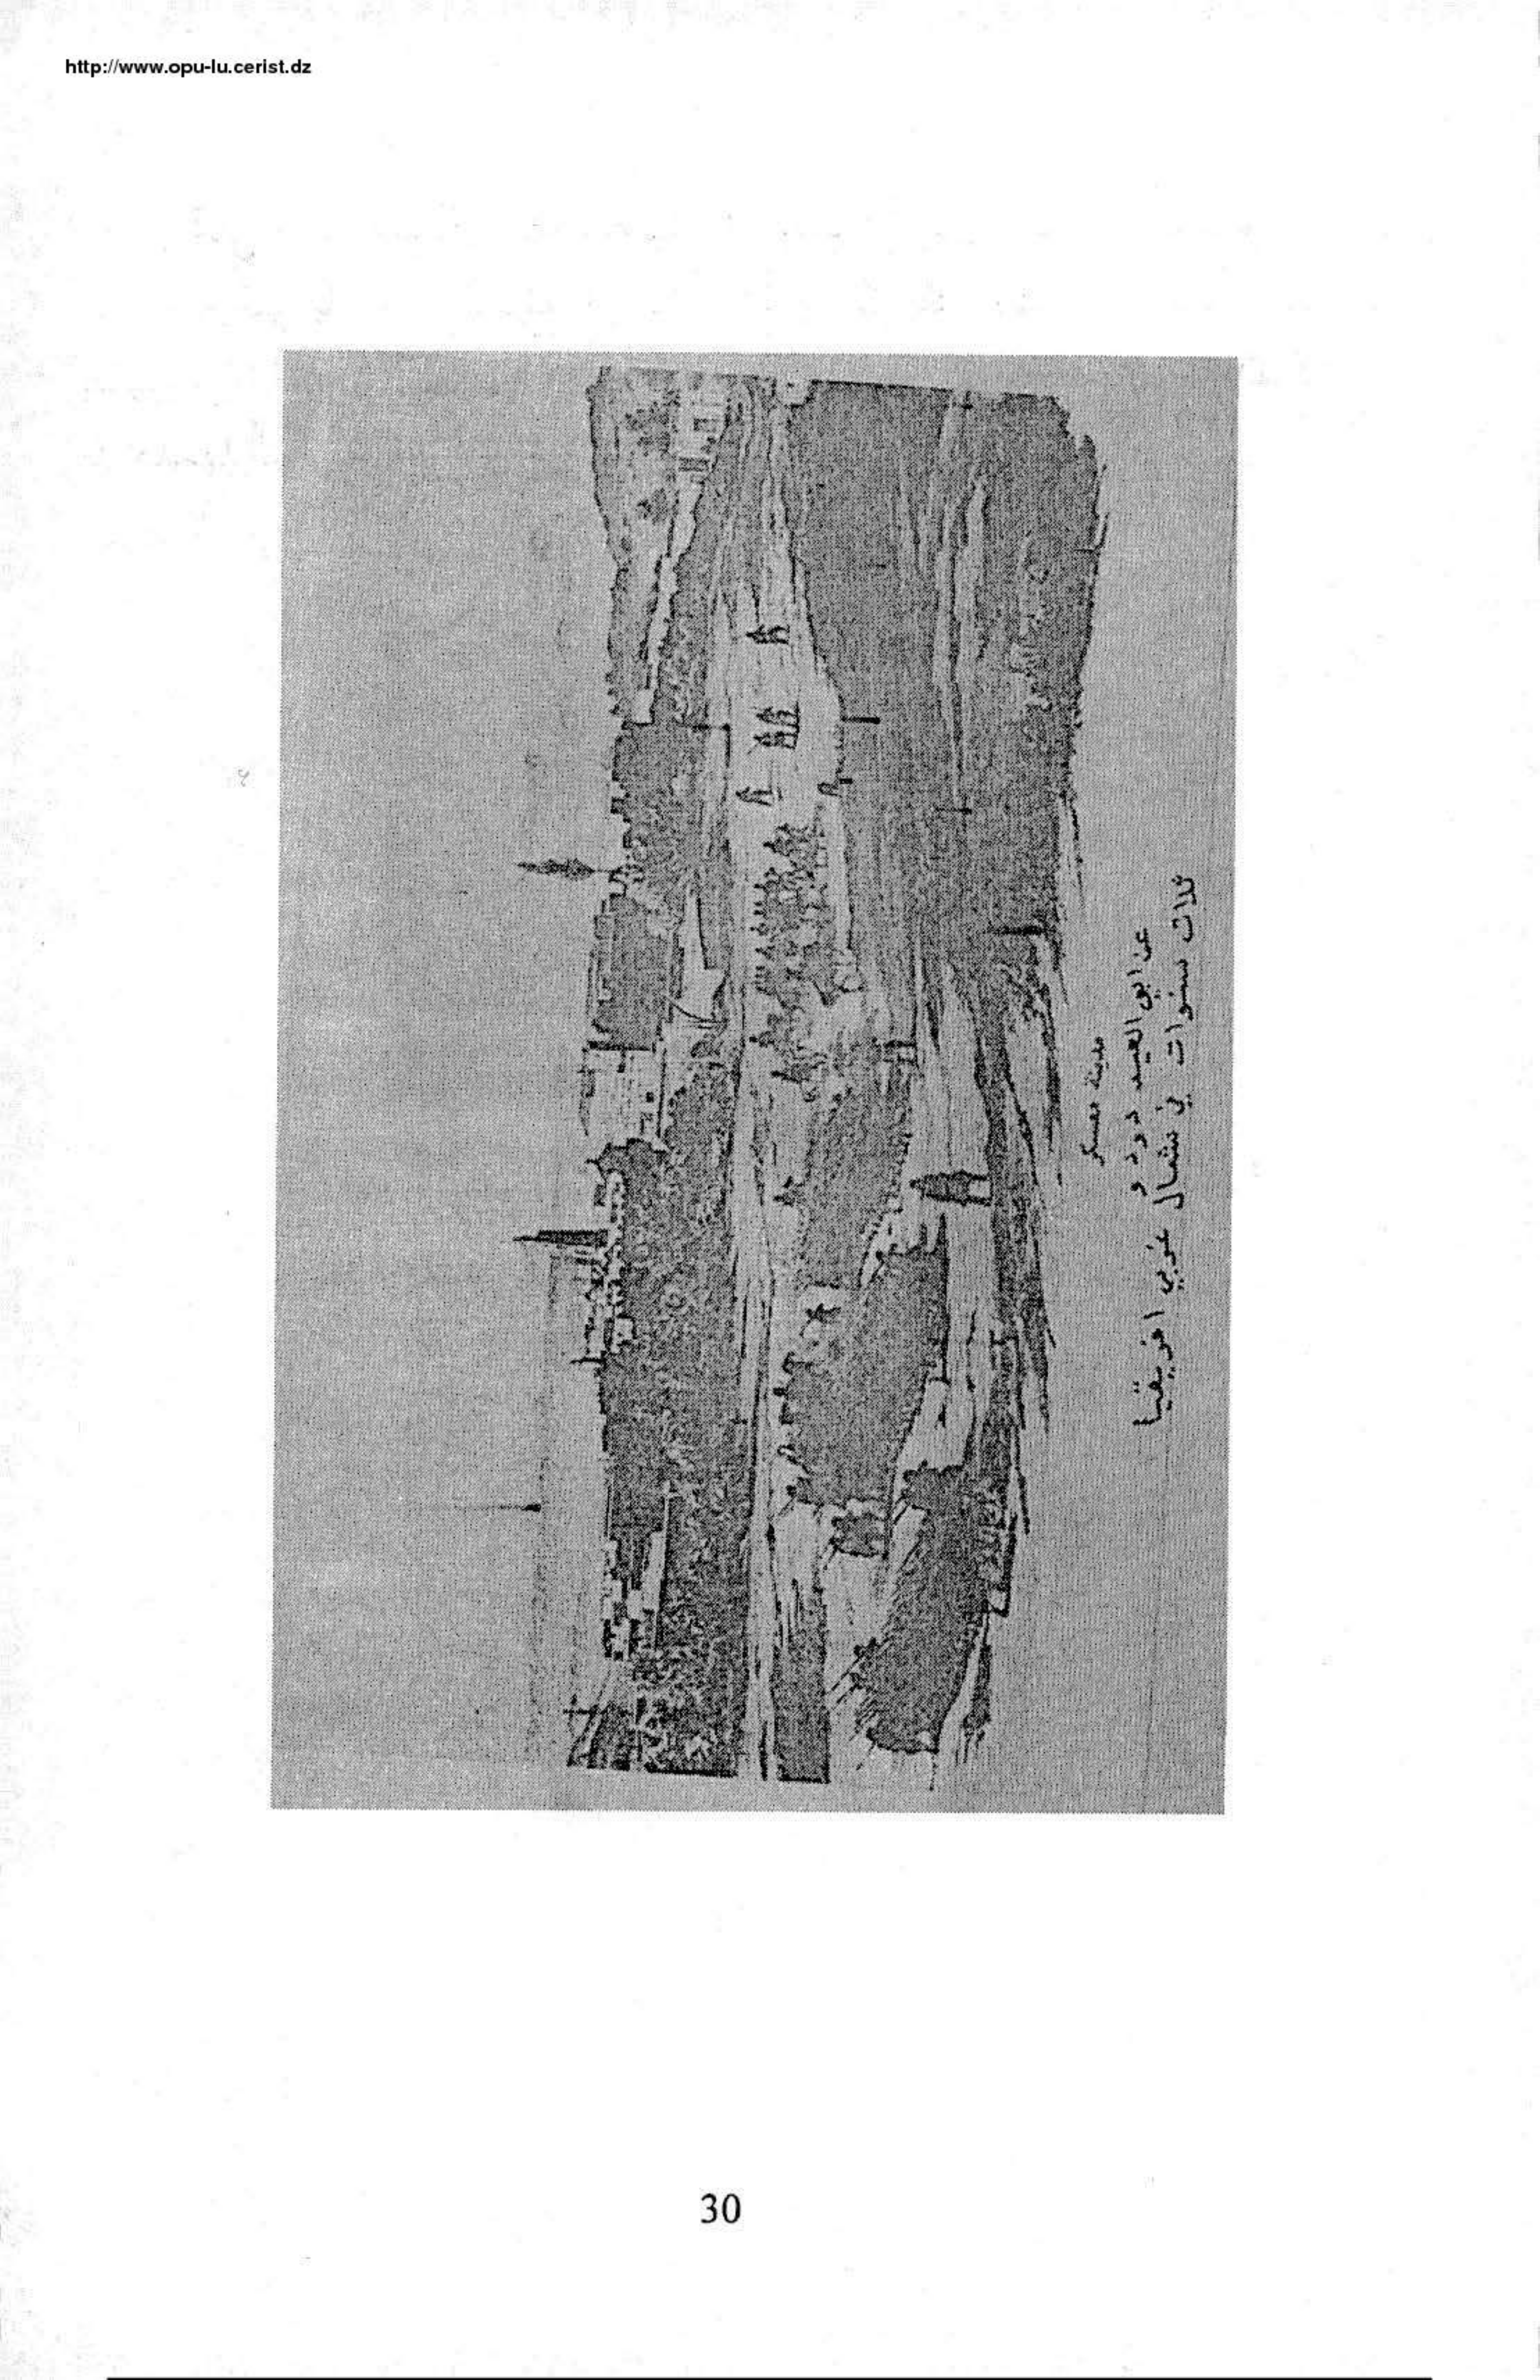 http://www.opu-lu.cerist.dz
مدينة معسكر
عن ابو العيد دودو
ثلاث سنوات في شمال غربي افريقيا
30